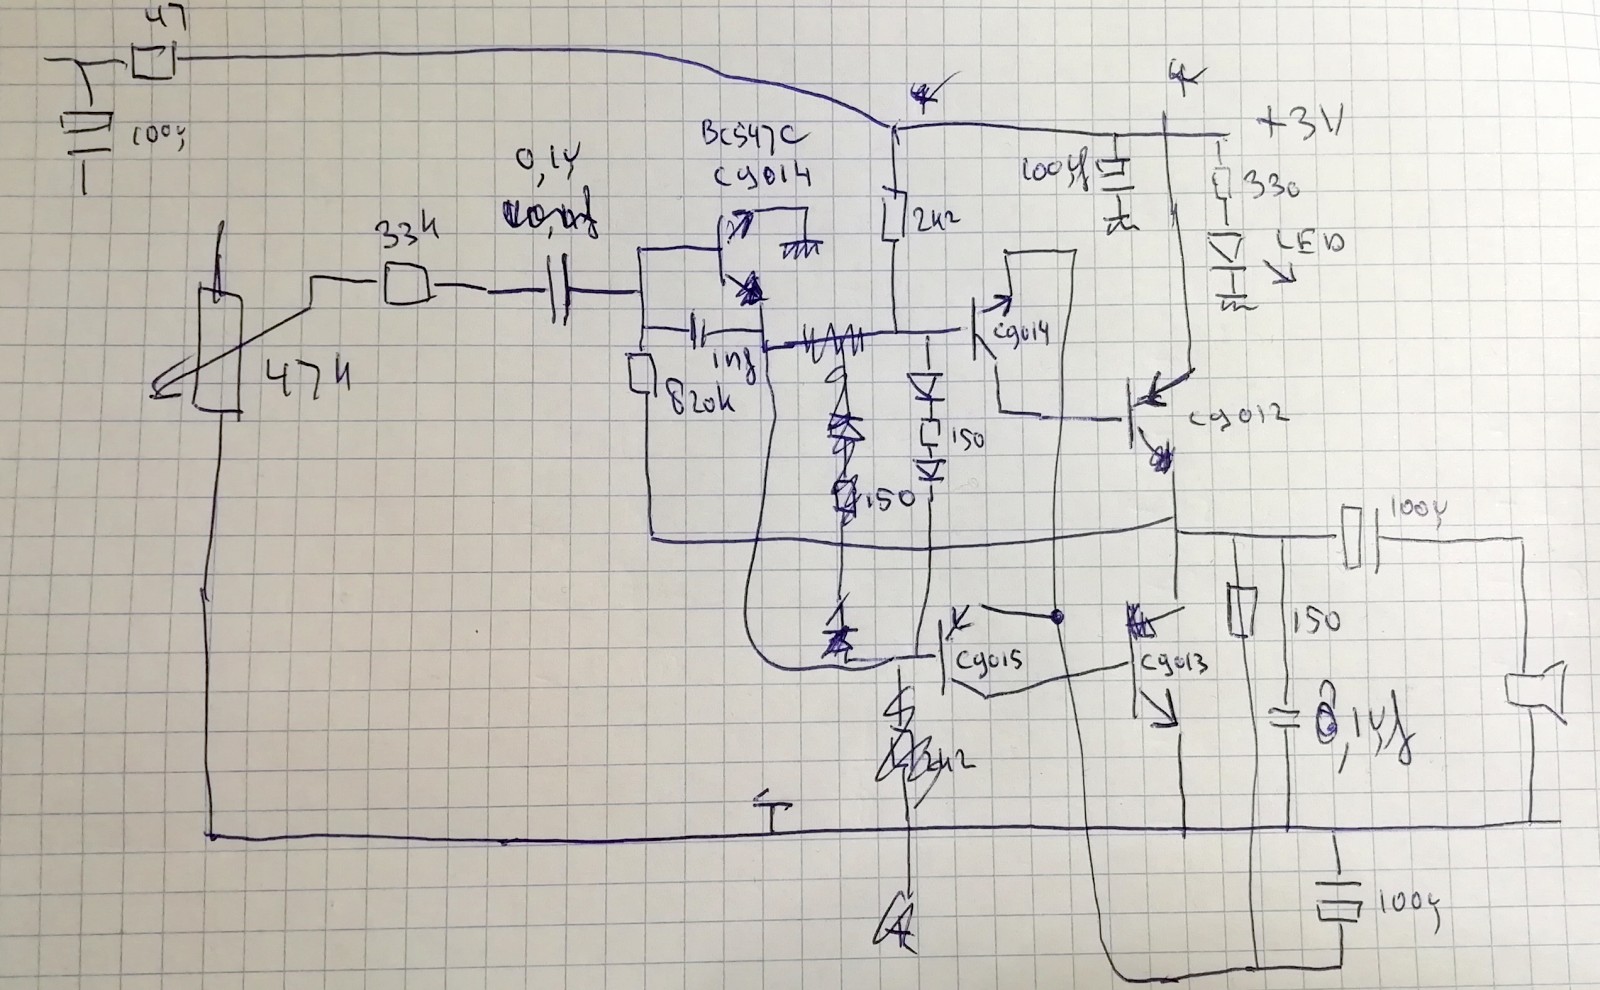 47
100µ
BC547C
C9014
0,1µ
33k
47k
1nf
820k
2k2
100µf
+3V
330
LED
C9014
C9012
150
150
100µ
C9015
C9013
150
0,1µf
2k2
100µ